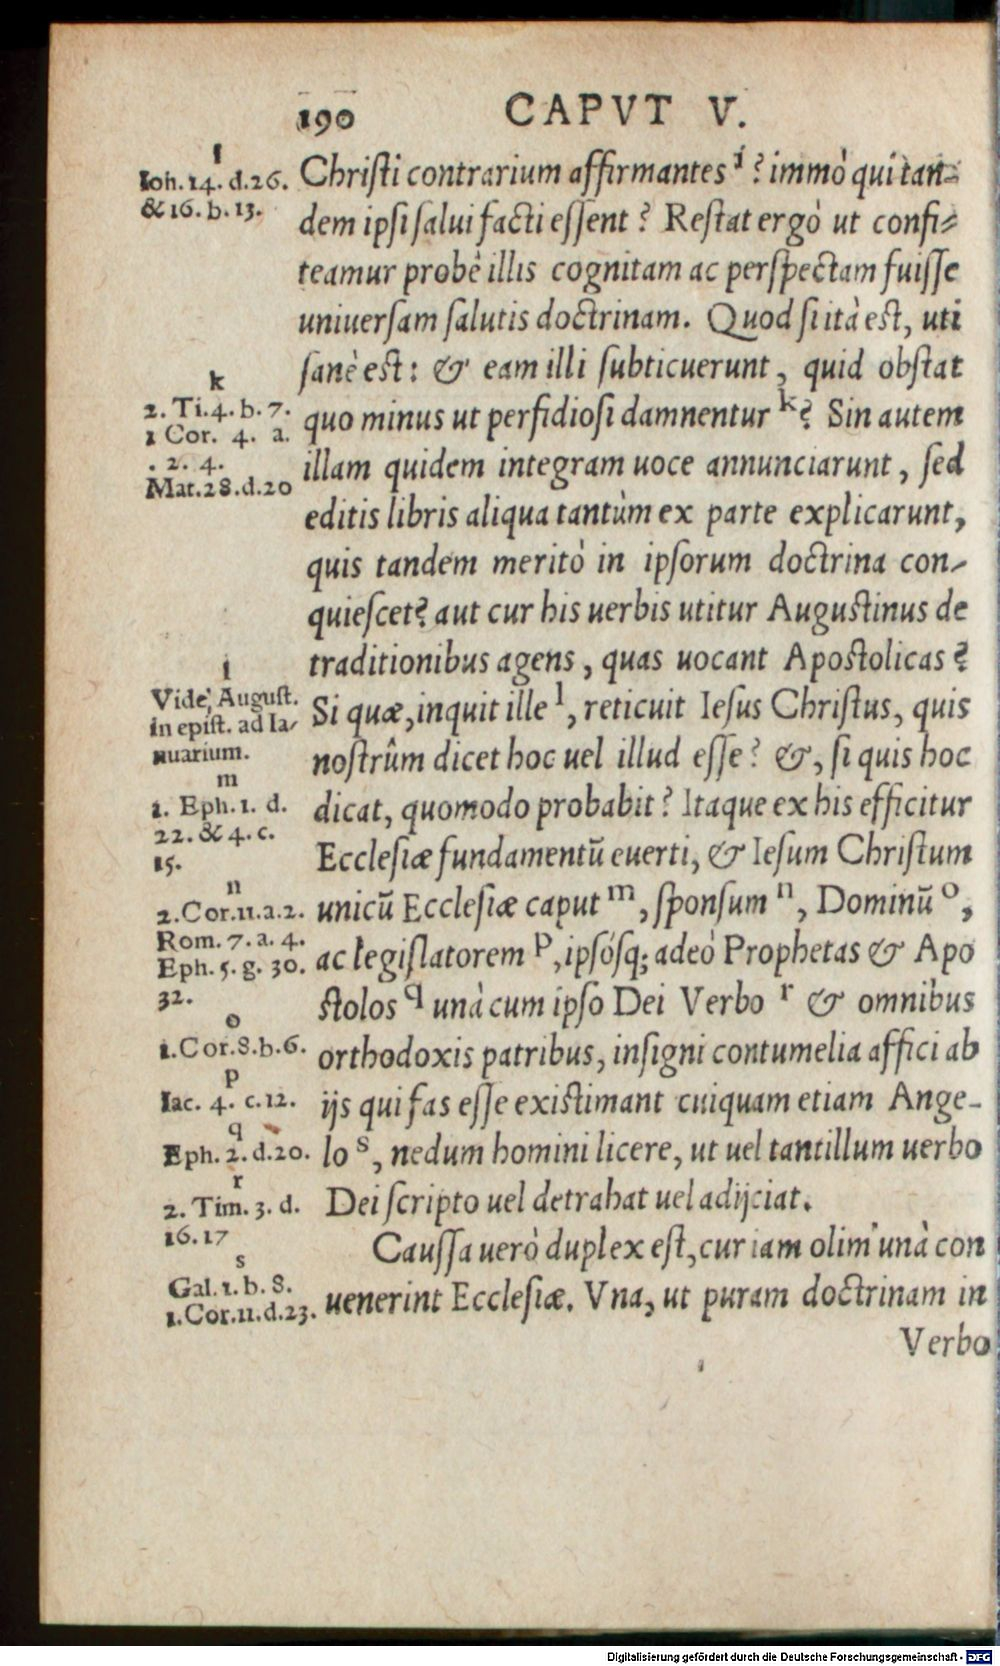 190 CAPVT V.
i
Ioh. 14. d. 26.
& 16. b. 13.
k
2. Ti. 4. b. 7.
1 Cor. 4. a.
. 2. 4.
Mat. 28. d. 20
l
Vide, August.
in epist. ad Ia-
nuarium.
m
1. Eph. 1. d.
22. & 4. c.
15.
n
2. Cor. 11. a. 2.
Rom. 7. a. 4.
Eph. 5. g. 30.
32.
o
1. Cor. 8. b. 6.
p
Iac. 4. c. 12.
q
Eph. 2. d. 20.
r
2. Tim. 3. d.
16. 17
s
Gal. 1. b. 8.
1. Cor. 11. d. 23.
Christi contrarium affirmantes i ? immò qui tan-
dem ipsi salui facti essent ? Restat ergò ut confi-
teamur probè illis cognitam ac perspectam fuisse
uniuersam salutis doctrinam. Quod si ità est, uti
sanè est: & eam illi subticuerunt, quid obstat
quo minus ut perfidiosi damnentur k ? Sin autem
illam quidem integram uoce annunciarunt, sed
editis libris aliqua tantùm ex parte explicarunt,
quis tandem meritò in ipsorum doctrina con-
quiescet? aut cur his uerbis utitur Augustinus de
traditionibus agens, quas uocant Apostolicas ?
Si quæ, inquit ille l, reticuit Iesus Christus, quis
nostrûm dicet hoc uel illud esse ? &, si quis hoc
dicat, quomodo probabit ? Itaque ex his efficitur
Ecclesiæ fundamentū euerti, & Iesum Christum
unicū Ecclesiæ caput m, sponsum n, Dominū o,
ac legislatorem p, ipsósq; adeò Prophetas & Apo
stolos q unà cum ipso Dei Verbo r & omnibus
orthodoxis patribus, insigni contumelia affici ab
ijs qui fas esse existimant cuiquam etiam Ange-
lo s, nedum homini licere, ut uel tantillum uerbo
Dei scripto uel detrahat uel adijciat.
Caussa uerò duplex est, cur iam olim unà con
uenerint Ecclesiæ. Vna, ut puram doctrinam in
Verbo
Digitalisierung gefördert durch die Deutsche Forschungsgemeinschaft - DFG